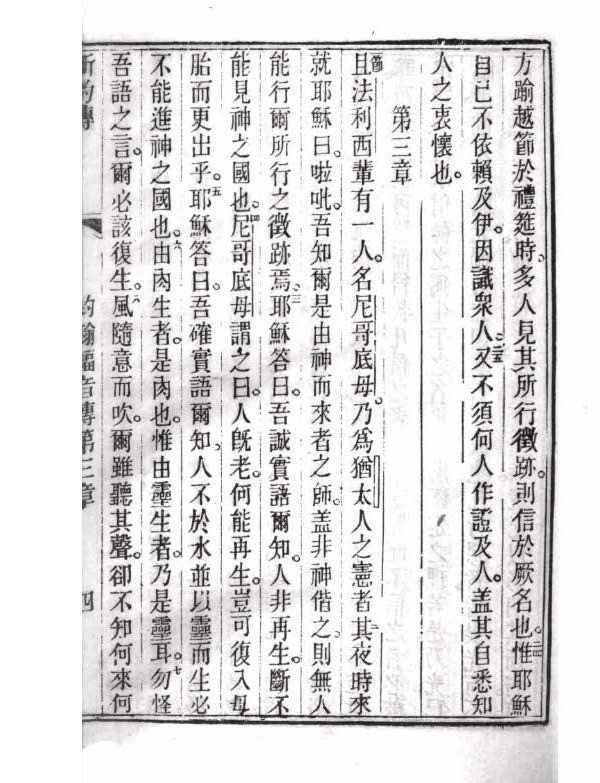 方踰越節於禮筵時。多人見其所行徵跡。則信於厥名也。二四惟耶穌
自己不依賴及伊。因識衆人。二五又不須何人作證及人。盖其自悉知
人之衷懷也。
第三章
節一且法利西輩有一人。名尼哥底母。乃為猶太人之憲者。二其夜時來
就耶穌曰。啦吡。吾知爾是由神而來者之師。盖非神偕之。則無人
能行爾所行之徵跡焉。三耶穌答曰。吾誠實語爾知。人非再生。斷不
能見神之國也。四尼哥底母謂之曰。人旣老。何能再生。豈可復入母
胎而更出乎。五耶穌答曰。吾確實語爾知。人不於水並以靈而生。必
不能進神之國也。六由肉生者。是肉也。惟由靈生者。乃是靈耳。七勿怪
吾語之言。爾必該復生。八風隨意而吹。爾雖聽其聲。卻不知何來何
約翰福音傳第三章 四